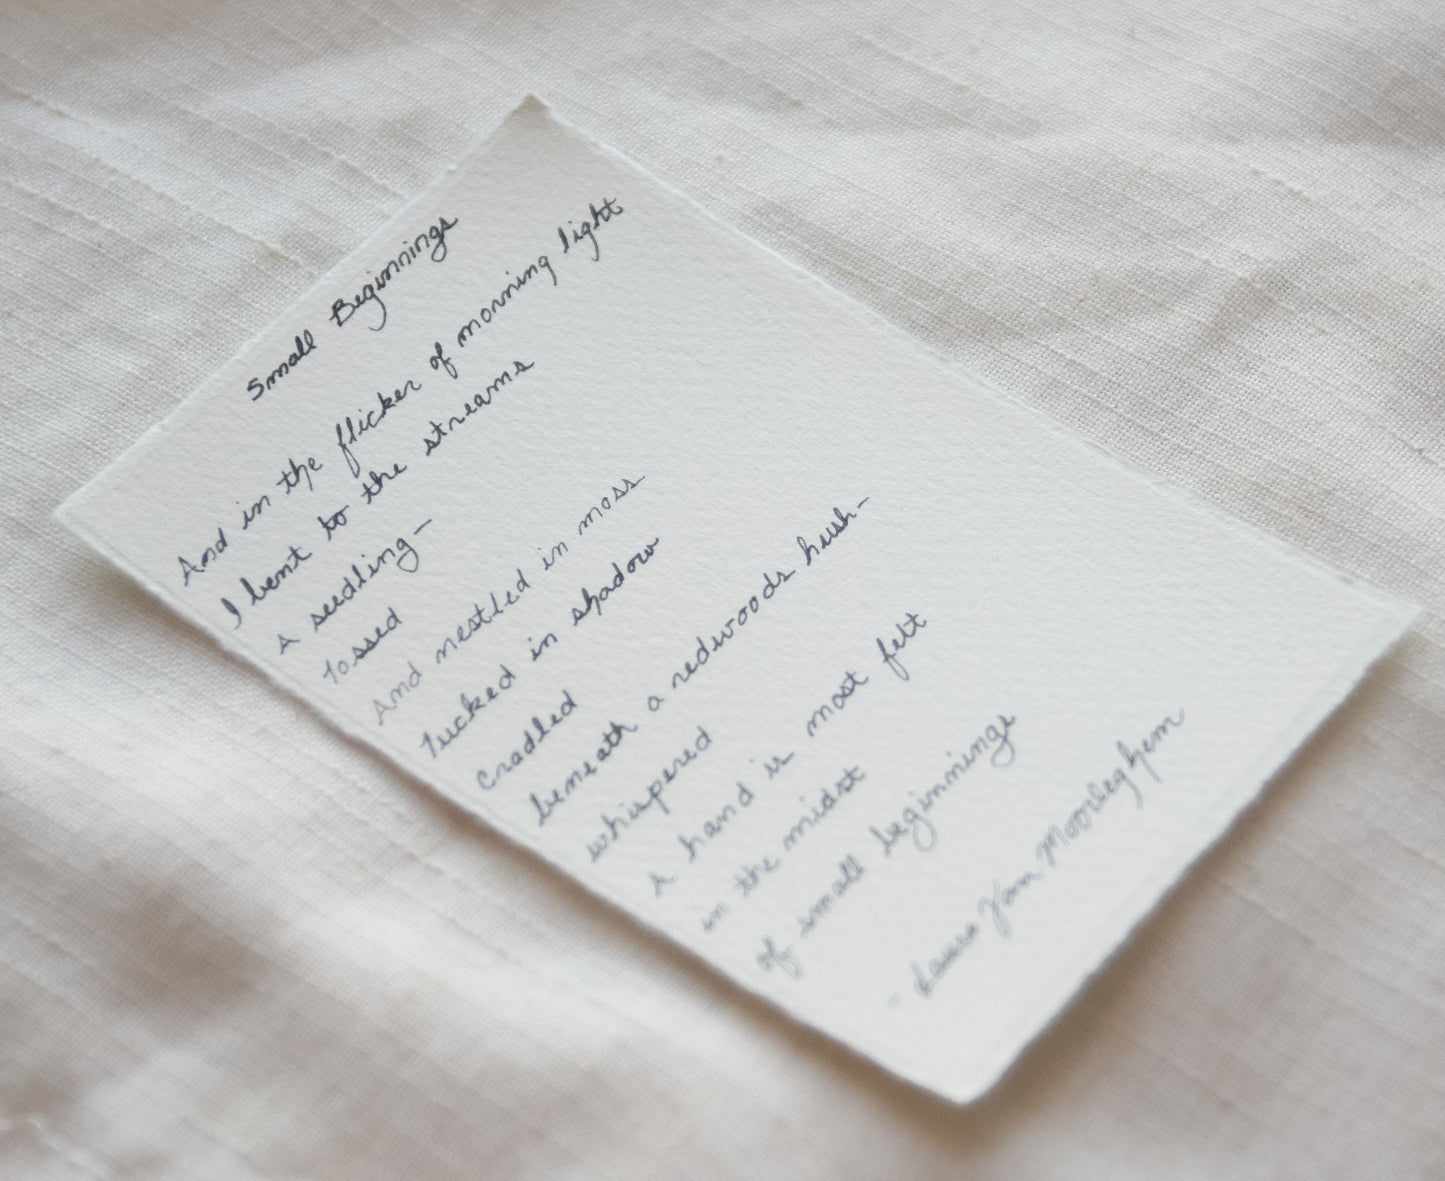 Small Beginnings
And in the flicker of morning light
I bent to the streams
a seedling—
Tossed
And nestled in moss
Tucked in shadow
Cradled
beneath a redwoods hush—
whispered
a hand is most felt
in the midst
of small beginnings
- Laura Van Moorleghem